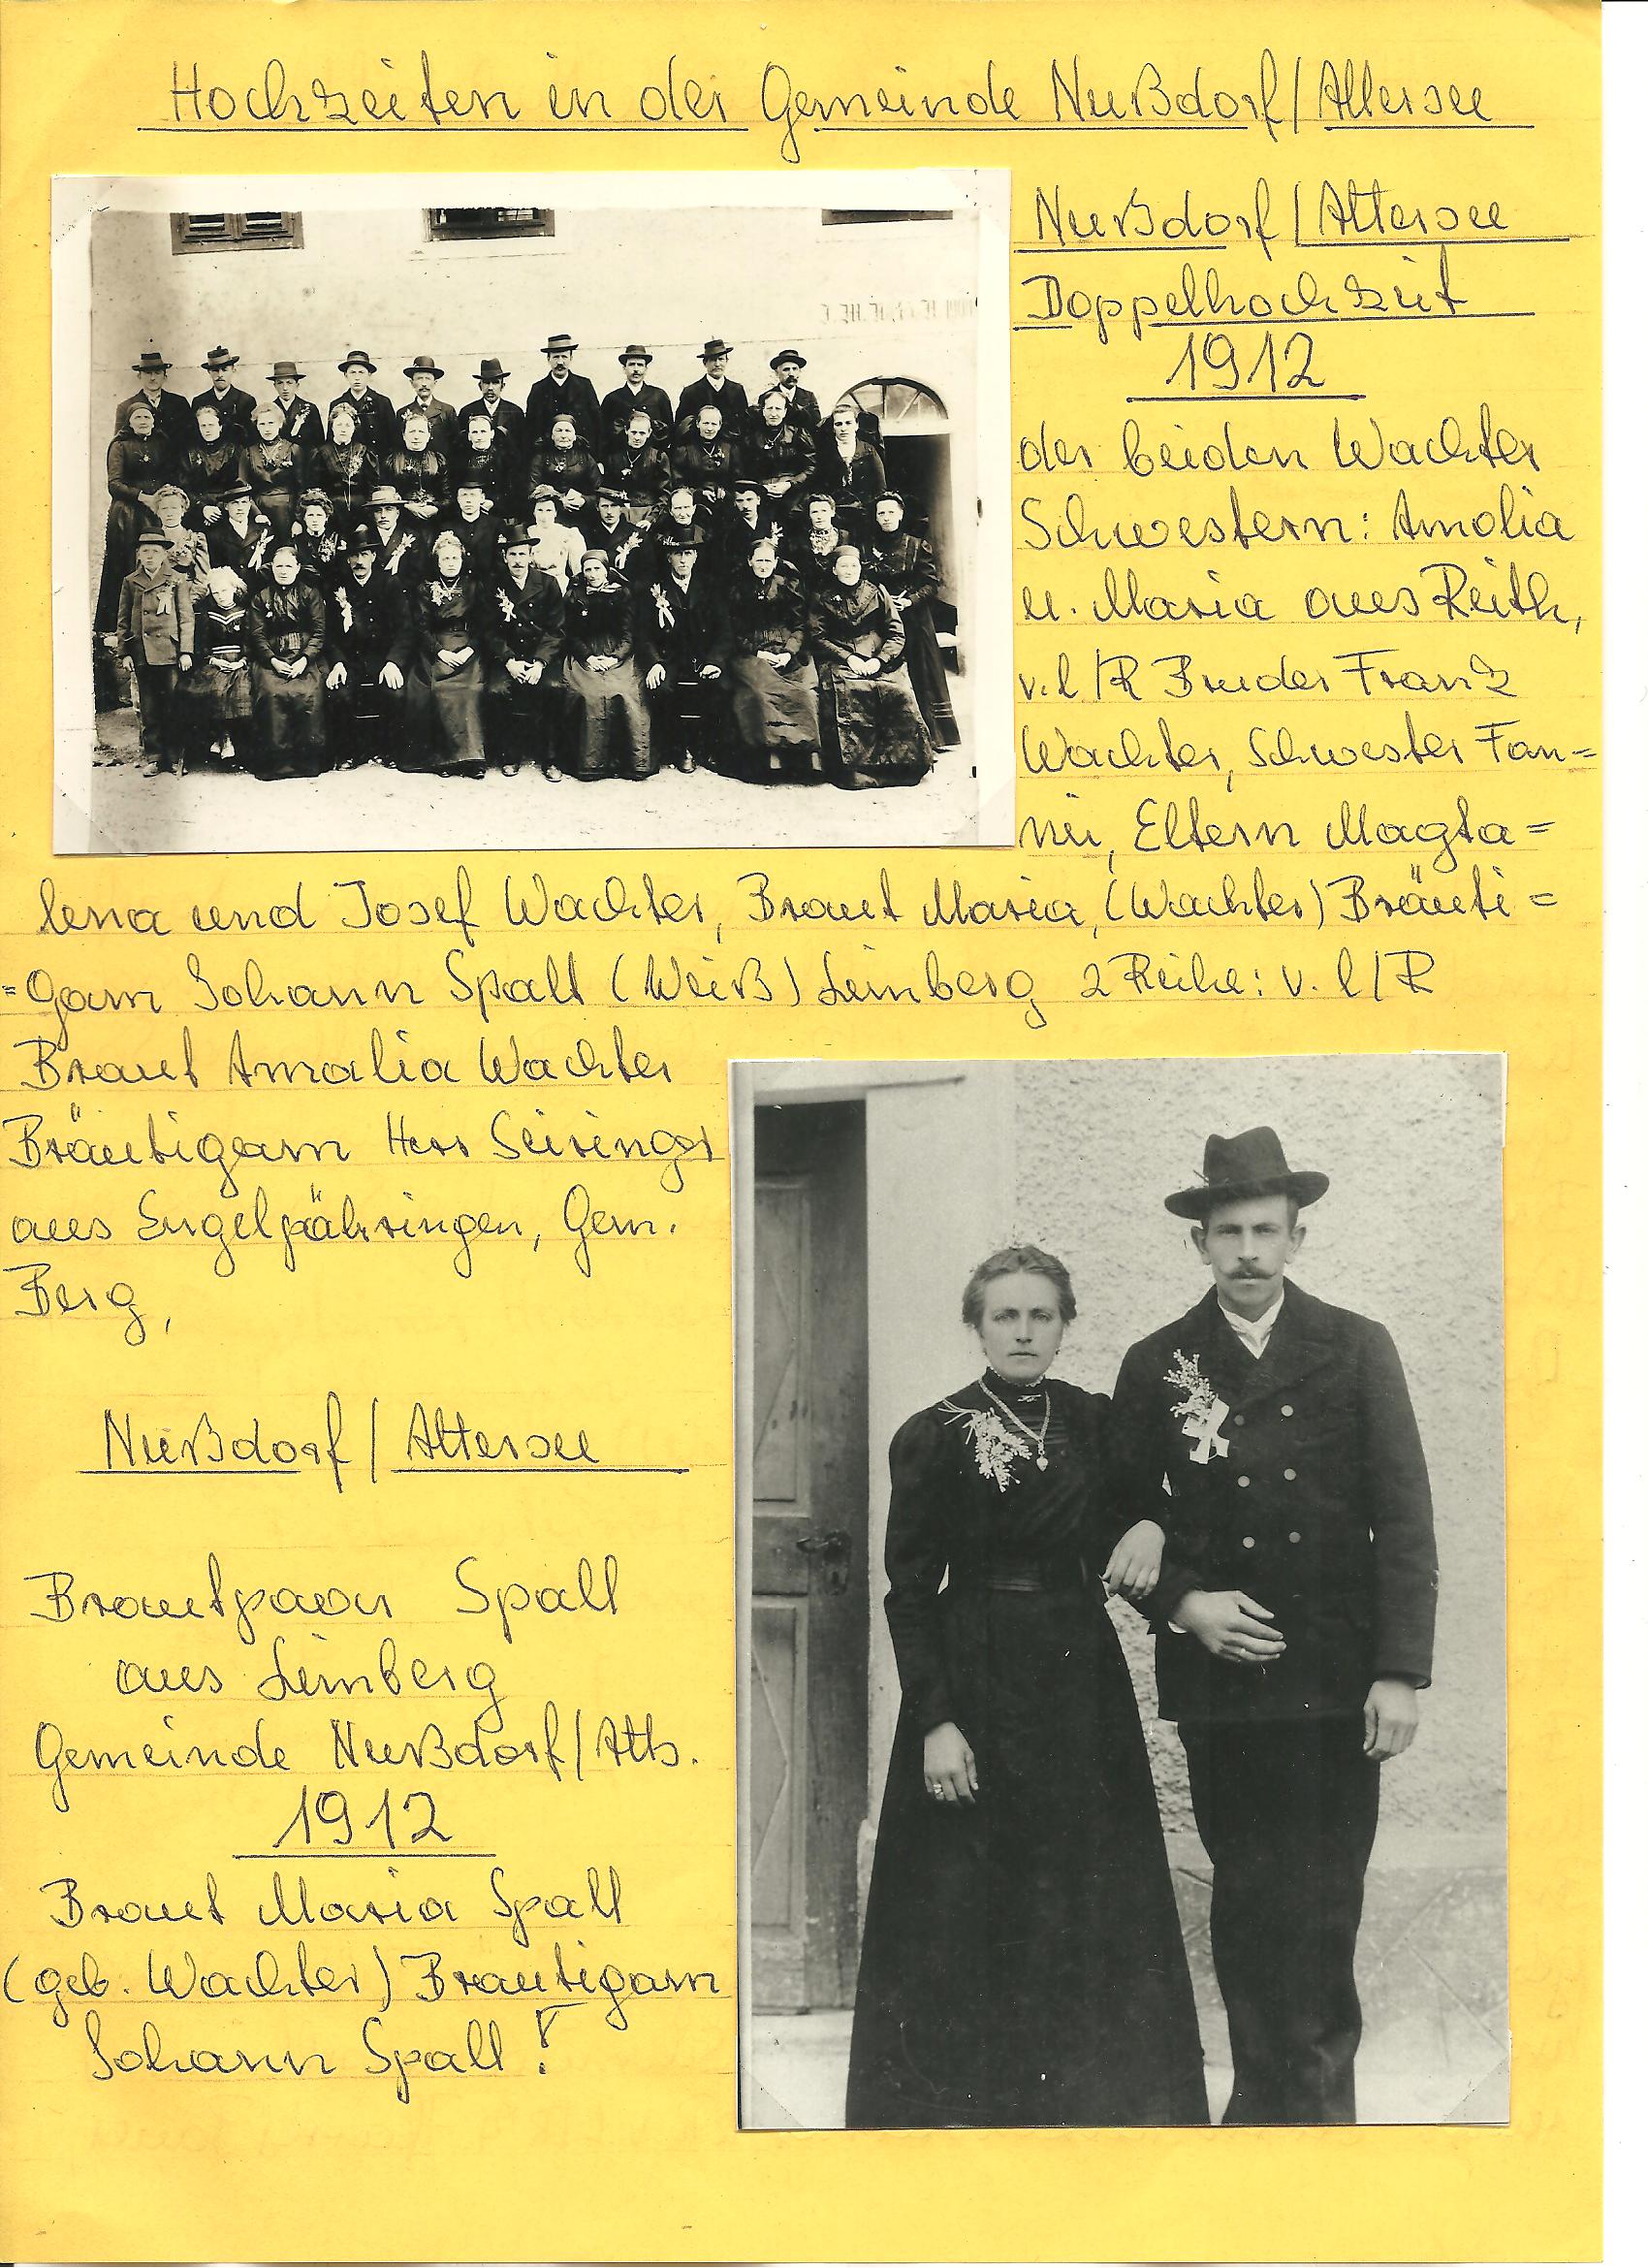 Hochzeiten in der Gemeinde Nußdorf/Attersee
Nußdorf/Attersee
Doppelhochzeit
1912
der beiden Wachter
Schwestern: Amalia
u. Maria aus Reith,
v.l/R Bruder Franz
Wachter, Schwester Fan=
ni, Eltern Magta=
lena und Josef Wachter, Braut Maria, (Wachter) Bräuti=
=gam Johann Spalt (Weiß) Limberg 2 Reihe: v. l/R
Braut Amalia Wachter
Bräutigam Herr Seiringer
aus Engelpähringen, Gem.
Berg,
Nußdorf/Attersee
Brautpaar Spalt
aus Limberg
Gemeinde Nußdorf/Atts.
1912
Braut Maria Spalt
(geb. Wachter) Brautigam
Johann Spalt!